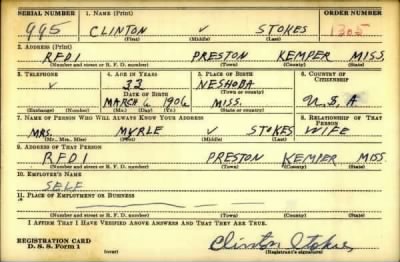 SERIAL NUMBER 1. NAME (Print) ORDER NUMBER
995 CLINTON V STOKES 1305
(First) (Middle) (Last)
2. ADDRESS (Print)
RFD1 PRESTON KEMPER MISS.
(Number and street or R. F. D. number) (Town) (County) (State)
3. TELEPHONE 4. AGE IN YEARS 5. PLACE OF BIRTH 6. COUNTRY OF CITIZENSHIP
V NESHOBA
DATE OF BIRTH (Town or county)
MARCH 6 1906 MISS. U.S.A
(Exchange) (Number) (Mo.) (Day) (Yr.) (State or country)
7. NAME OF PERSON WHO WILL ALWAYS KNOW YOUR ADDRESS 8. RELATIONSHIP OF THAT PERSON
MRS. MYRLE V STOKES WIFE
(Mr., Mrs., Miss) (First) (Middle) (Last)
9. ADDRESS OF THAT PERSON
RFD1 PRESTON KEMPER MISS.
(Number and street or R. F. D. number) (Town) (County) (State)
10. EMPLOYER'S NAME
SELF
11. PLACE OF EMPLOYMENT OR BUSINESS
(Number and street or R. F. D. number) (Town) (County) (State)
I AFFIRM THAT I HAVE VERIFIED ABOVE ANSWERS AND THAT THEY ARE TRUE.
REGISTRATION CARD
D. S. S. Form 1 (over) Clinton Stokes
(Registrant's signature)